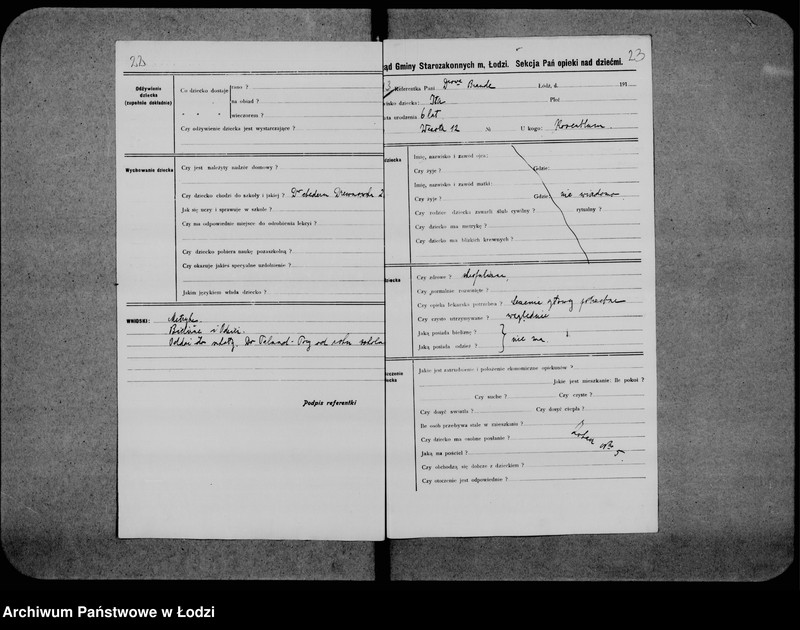 22
Odżywienie
dziecka
(zupełnie dokładnie)
Co dziecko dostaje rano ?
" " na obiad ?
" " wieczorem ?
Czy odżywienie dziecka jest wystarczające ?
Wychowanie dziecka
Czy jest należyty nadzór domowy ?
Czy dziecko chodzi do szkoły i jakiej ? Do chederu Drewnowska 2
Jak się uczy i sprawuje w szkole ?
Czy ma odpowiednie miejsce do odrobienia lekcyi ?
Czy dziecko pobiera naukę pozaszkolną ?
Czy okazuje jakieś specyalne uzdolnienie ?
Jakim językiem włada dziecko ?
WNIOSKI: Metryka.
Bieliznę i Odzież.
Oddać do szkoły. od roku szkoln
Podpis referentki
23
ąd Gminy Starozakonnych m. Łodzi. Sekcja Pań opieki nad dziećmi.
3 Referentka Pani Brande Łódź, d. 191
wisko dziecka: Ita Płeć
ata urodzenia 6 lat
Wesoła 12 № U kogo: Rosenblum
dziecka
Imię, nazwisko i zawód ojca:
Czy żyje ? Gdzie:
Imię, nazwisko i zawód matki:
Czy żyje ? Gdzie: nie wiadomo
Czy rodzice dziecka zawarli ślub cywilny ? rytualny ?
Czy dziecko ma metrykę ?
Czy dziecko ma bliskich krewnych ?
dziecka
Czy zdrowe ? skrofuliczne,
Czy normalnie rozwinięte ?
Czy opieka lekarska potrzebna ? Leczenie głowy potrzebne
Czy czysto utrzymywane ? względnie
Jaką posiada bieliznę ?
Jaką posiada odzież ? nie ma.
czenie
ecka
Jakie jest zatrudnienie i położenie ekonomiczne opiekunów ?
Jakie jest mieszkanie: Ile pokoi ?
Czy suche ? Czy czyste ?
Czy dosyć światła ? Czy dosyć ciepła ?
Ile osób przebywa stale w mieszkaniu ?
Czy dziecko ma osobne posłanie ?
Jaką ma pościel ?
Czy obchodzą się dobrze z dzieckiem ?
Czy otoczenie jest odpowiednie ?
Archiwum Państwowe w Łodzi